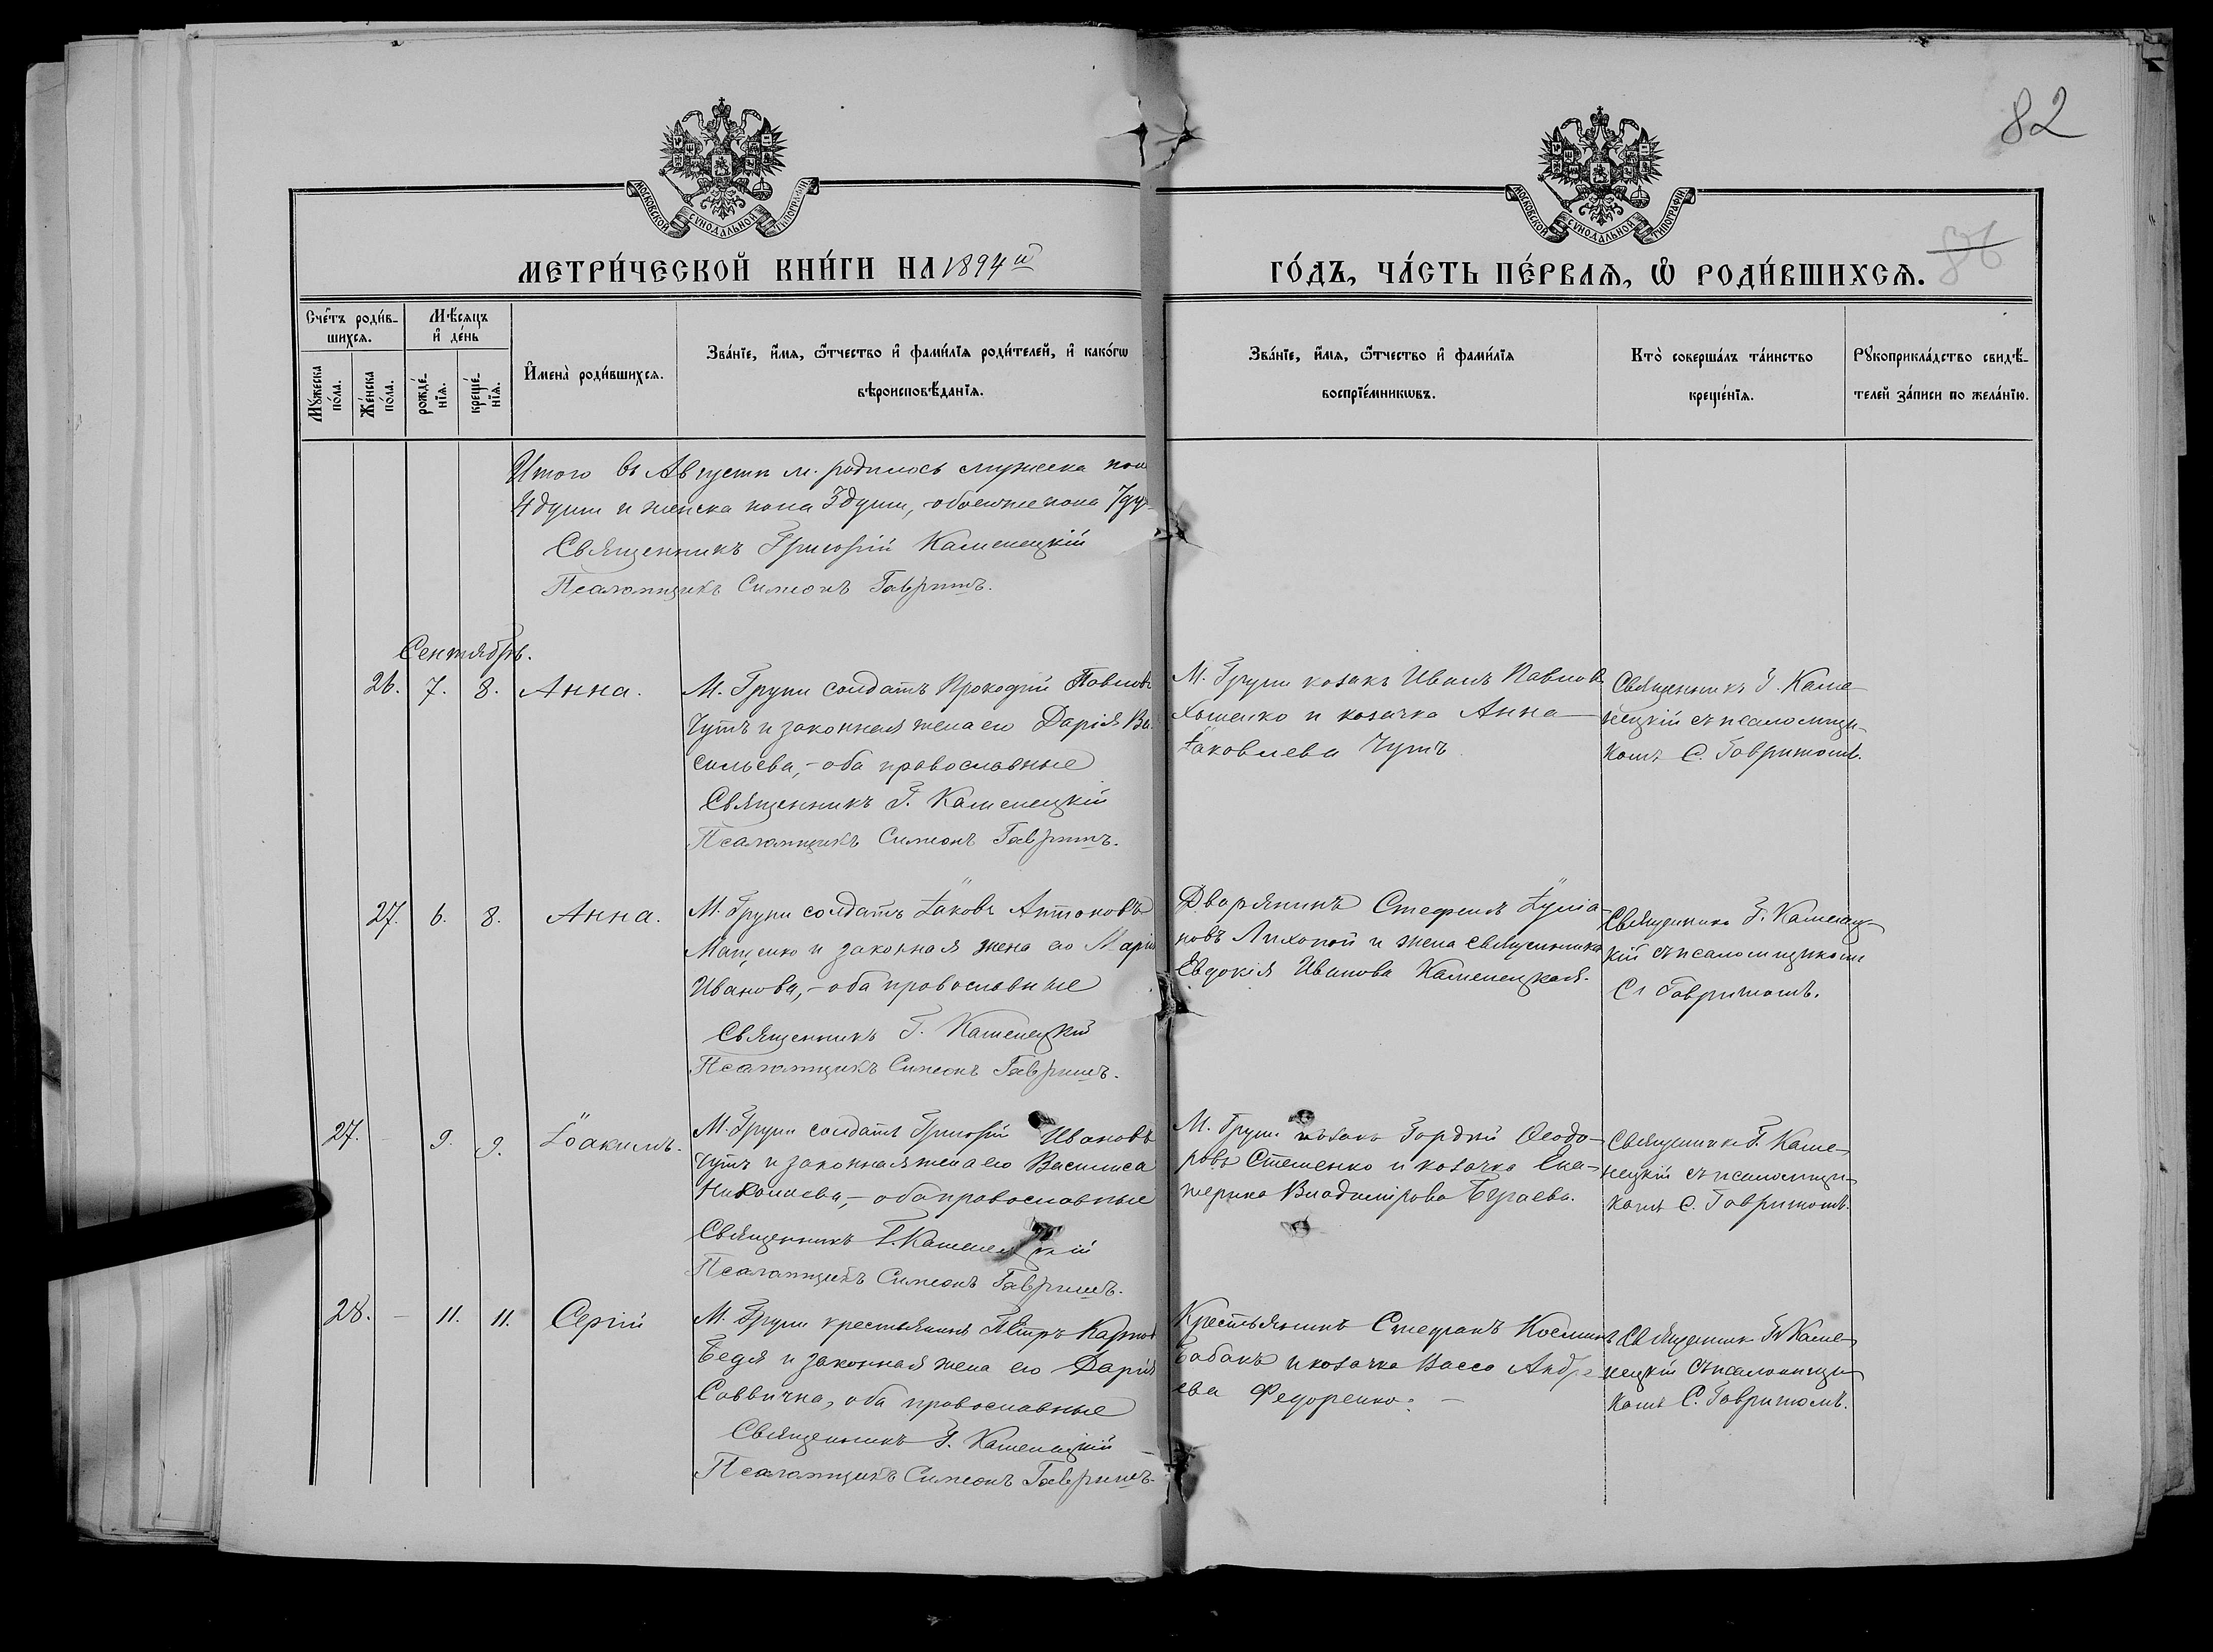 82
86
МОСКОВСКОЙ СѴНОДАЛЬНОЙ ТИПОГРАФІИ
МОСКОВСКОЙ СѴНОДАЛЬНОЙ ТИПОГРАФІИ
МЕТРИ́ЧЕСКОЙ КНИ́ГИ НА 1894й
ГО́ДЪ, ЧА́СТЬ ПЕ́РВАѦ, Ѡ҆ РОДИ́ВШИХСѦ.
Сче́тъ роди́в-
шихсѧ.
Мꙋ́жеска
по́ла.
Же́нска
по́ла.
Мѣ́сѧцъ
и҆ де́нь
рожде́-
нїѧ.
креще́-
нїѧ.
И҆мена̀ роди́вшихсѧ.
Зва́нїе, и҆́мѧ, ѻ҆́тчество и҆ фамі́лїѧ роди́телей, и҆ како́гѡ
вѣроисповѣ́данїѧ.
Зва́нїе, и҆́мѧ, ѻ҆́тчество и҆ фамі́лїѧ
воспрїе́мникѡвъ.
Кто̀ соверша́лъ та́инство
креще́нїѧ.
Рꙋкоприкла́дство свидѣ́-
телей за́писи по жела́нїю.
Итого въ Августѣ м. родилось мужеска пола
4 души и женска пола 3 души, обоего пола 7 ду
Священникъ Григорій Каменецкій
Псаломщикъ Симеонъ Гавришъ.
Сентябрь.
26. 7. 8. Анна.
М. Груни солдатъ Прокофій Павловъ
Чутъ и законная жена его Дарія Ва-
сильева, - оба православные
Священникъ Г. Каменецкій
Псаломщикъ Симеонъ Гавришъ.
М. Груни козакъ Иванъ Павлов
Хоменко и козачка Анна
Іаковлева Чутъ
Священникъ Г. Каме-
нецкій съ псаломщи-
комъ С. Гавришомъ.
27. 6. 8. Анна.
М. Груни солдатъ Іаковъ Антоновъ
Мащенко и законная жена его Марія
Иванова, - оба православные
Священникъ Г. Каменецкій
Псаломщикъ Симеонъ Гавришъ.
Дворянинъ Стефанъ Іуліа-
новъ Лихопой и жена священника
Евдокія Иванова Каменецкая.
Священникъ Г. Каменец-
кій съ псаломщикомъ
С. Гавришомъ.
27. - 9. 9. Іоакимъ.
М. Груни солдатъ Григорій Ивановъ
Чутъ и законная жена его Василиса
Николаева, - оба православные
Священникъ Г. Каменецкій
Псаломщикъ Симеонъ Гавришъ.
М. Груни козакъ Гордій Ѳеодо-
ровъ Стеменко и козачка Ека-
терина Владимірова Бугаева.
Священникъ Г. Каме-
нецкій съ псаломщи-
комъ С. Гавришомъ.
28. - 11. 11. Сергій
М. Груни крестьянинъ Петръ Карпов
Бедя и законная жена его Дарія
Саввична, оба православные
Священникъ Г. Каменецкій
Псаломщикъ Симеонъ Гавришъ.
Крестьянинъ Стефанъ Косминъ
Бабакъ и козачка Васса Андре
ева Федоренко. -
Священникъ Г. Каме-
нецкій съ псаломщи-
комъ С. Гавришомъ.